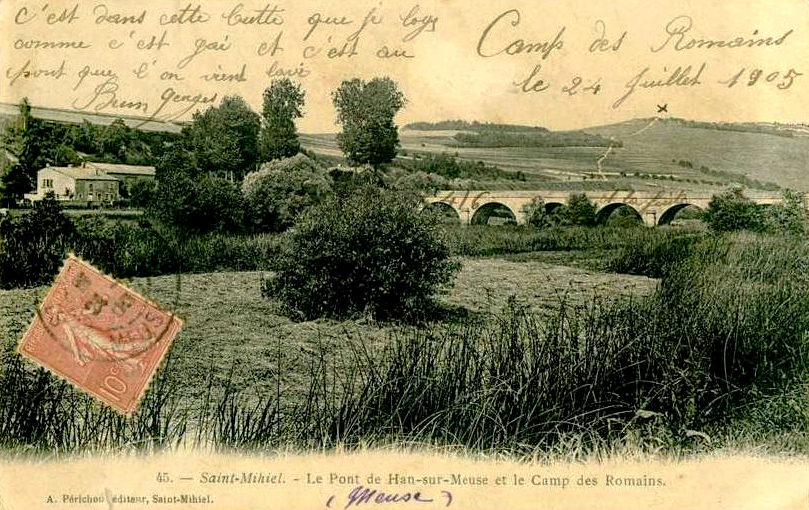 c'est dans cette butte que je loge
comme c'est gai et c'est au
pont que l'on vient laver
Camp des Romains
le 24 Juillet 1905
10c
45. — Saint-Mihiel. - Le Pont de Han-sur-Meuse et le Camp des Romains.
A. Périchon éditeur, Saint-Mihiel.
(Meuse)